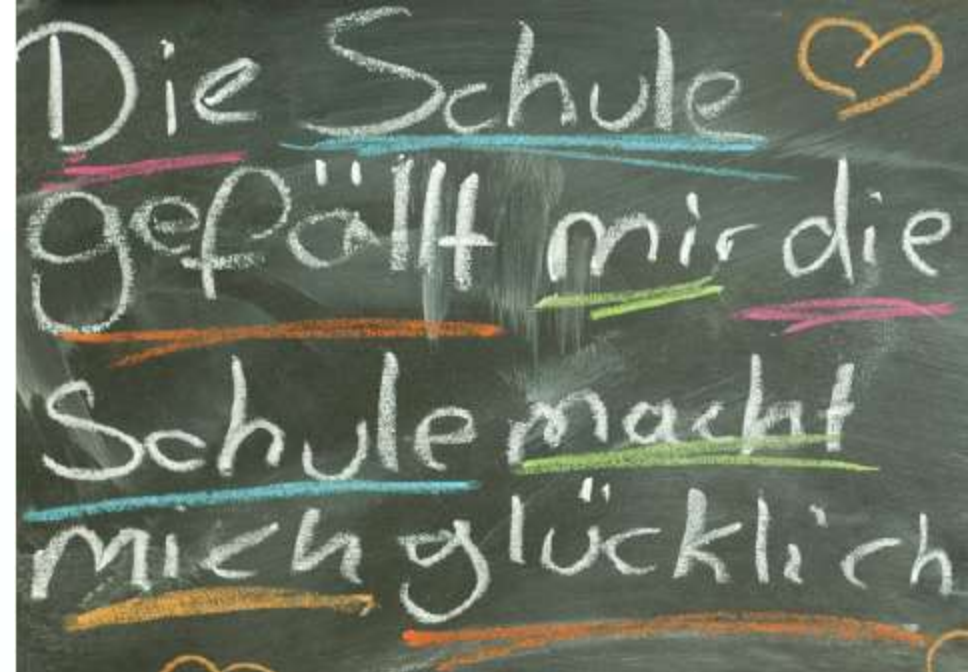 Die Schule
gefällt mir die
Schule macht
mich glücklich